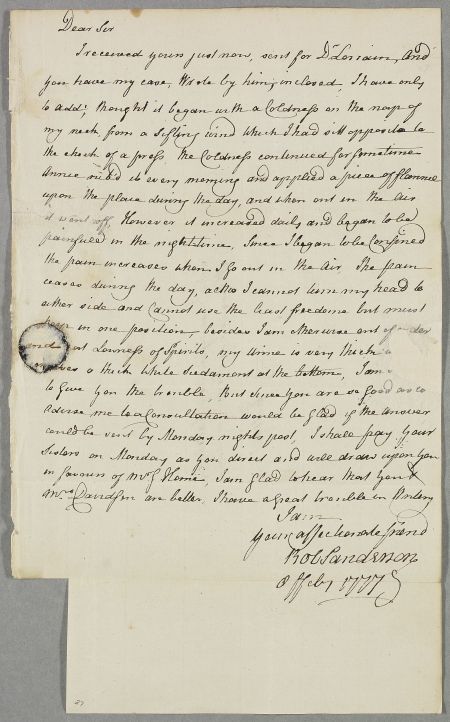 Dear Sir
I received yours just now, sent for Dr Lorrain, and
you have my case, Wrote by him, inclosed, I have only
to add, thought it began with a Coldness on the nap of
my neck from a Sifting wind which I had sitt opposite to
the check of a press the Coldness continued for sometime
rub'd it every morning and applied a piece of flannel
upon the place during the day, and when out in the Air
it went off, However it increased daily and began to be
painfull in the night time, Since I began to be Confined
the pain increases when I go out in the Air, The pain
ceases during the day, altho I cannot turn my head to
either side and Cannot use the least freedome but must
in one position besides I am otherwise out of order
and Lowness of Spirits, my Urine is very thick
a thick white Seedament at the bottom, I am
to give you the trouble, But since you are so good as to
advise me to a Consultation would be glad if the answer
could be sent by Monday nights post, I shall pay your
Sisters on Monday as you direct and will draw upon you
in favours of Mr G Home, I am glad to hear that you &
Mrs Davidson are better, I have a great trouble in Writing
I am
Your affectionate friend
Rob Sanderson
8 feby 1777